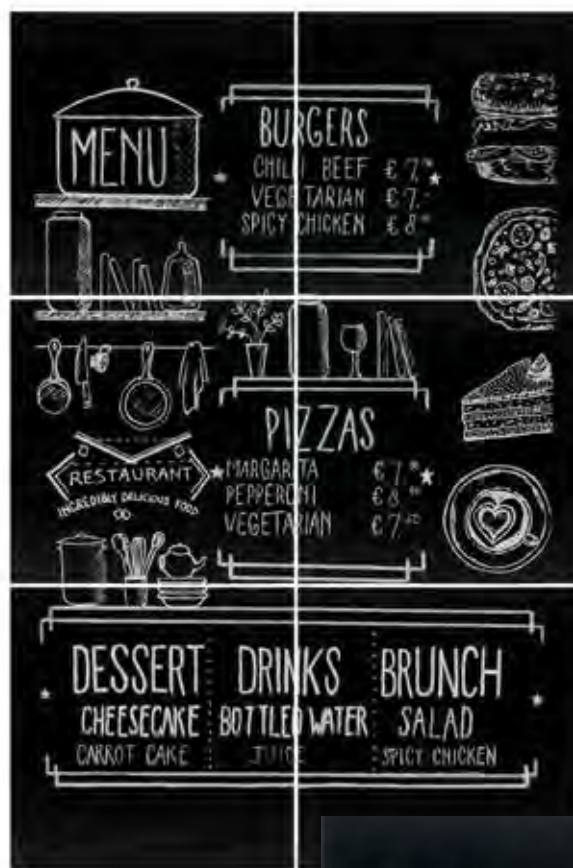 MENU
BURGERS
CHILLI BEEF €7.
VEGETARIAN €7.-
SPICY CHICKEN €8
RESTAURANT
INCREDIBLY DELICIOUS FOOD
PIZZAS
MARGARITA €7.
PEPPERONI €8.
VEGETARIAN €7.50
DESSERT
CHEESECAKE
CARROT CAKE
DRINKS
BOTTLED WATER
JUICE
BRUNCH
SALAD
SPICY CHICKEN